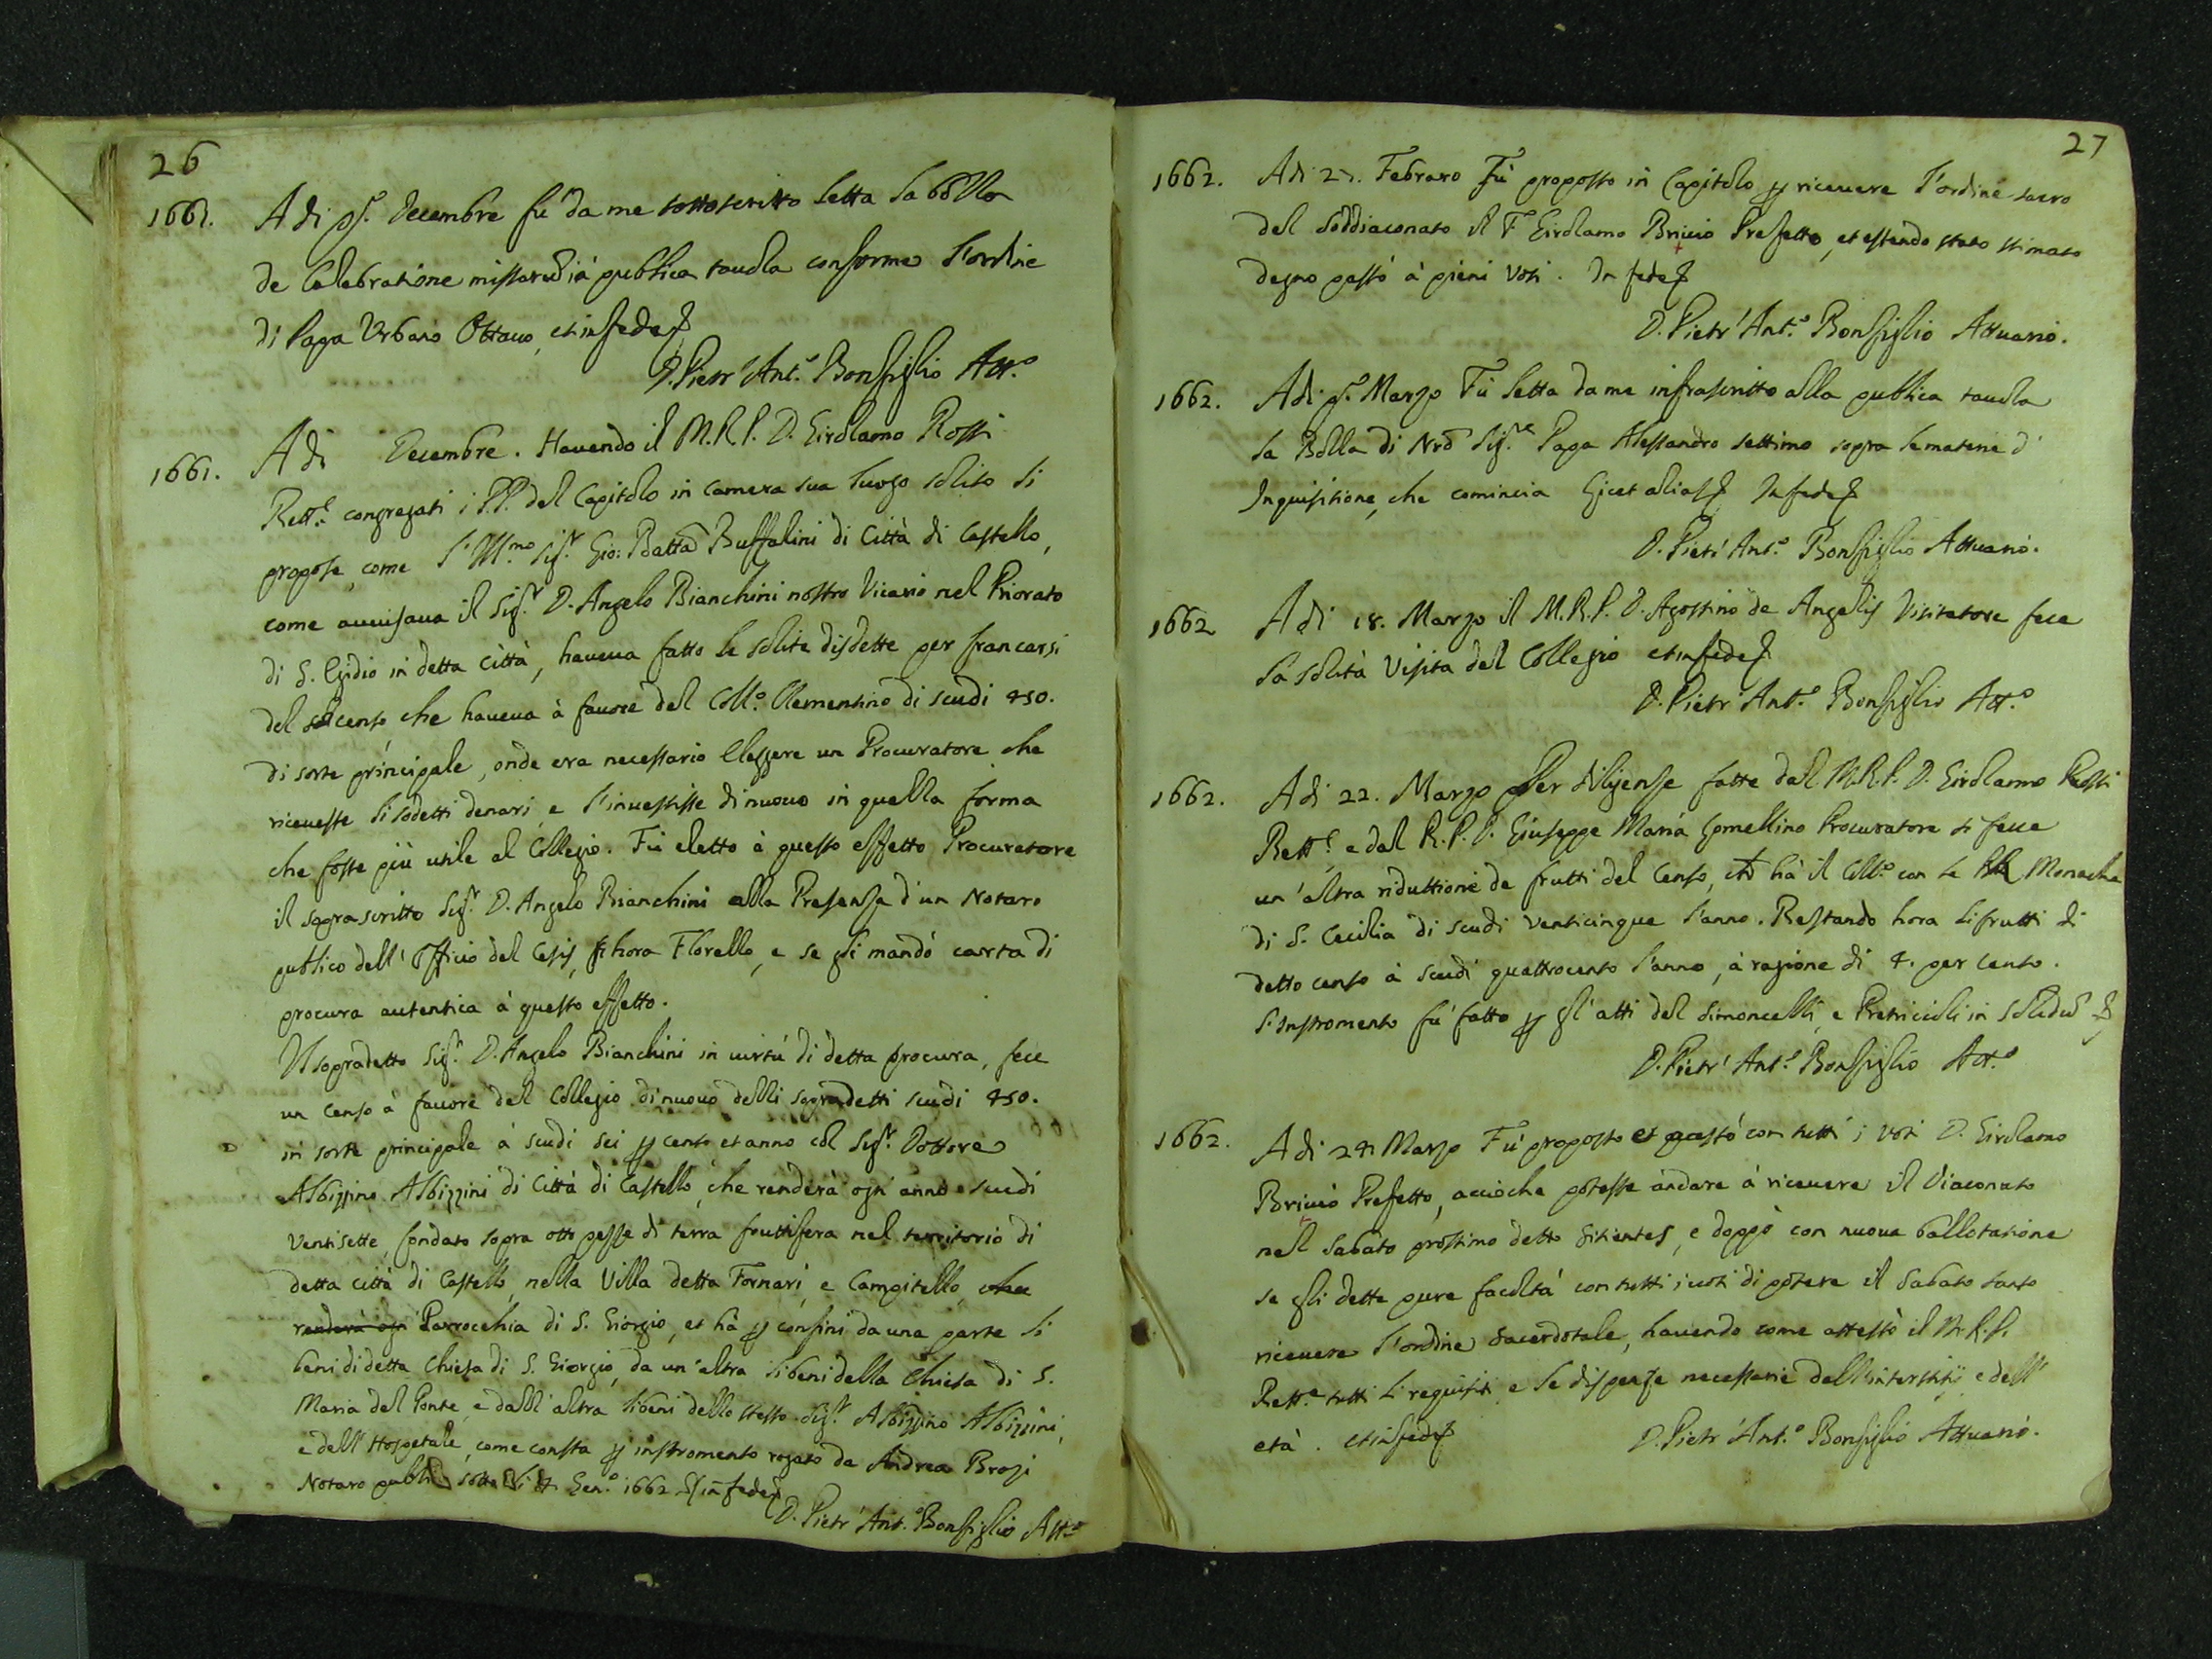 26
1661. Adi p.º Decembre fu da me sottoscritto letta la bolla
de Celebratione missarũ in publica tauola conforme l'ordine
di Papa Urbano Ottauo, et in fede
D. Pietr' Ant.º Bonfiglio Att.º
1661. Adi Decembre. Hauendo il M.R.P. D. Girolamo Rossi
Rett.e congregati i PP. del Capitolo in camera sua luogo solito li
propose, come l'Ill.mo Sig.r Gio: Batta Buffalini di Città di Castello,
come auuisaua il Sig.r D. Angelo Bianchini nostro Vicario nel Priorato
di S. Egidio in detta Città, haueua fatto le solite disdette per francarsi
del censo che haueua à fauore del Coll.º Clementino di scudi 450.
di sorte principale, onde era necessario elleggere un Procuratore che
riceuesse li sodetti denari, e l'inuestisse di nuouo in quella forma
che fosse più utile al Collegio. Fù eletto à questo effetto Procuratore
il soprascritto Sig.r D. Angelo Bianchini alla Presenza d'un Notaro
publico dell'Officio del Cesis, hora Florello, e se gli mandò carta di
procura autentica à questo effetto.
Il sopradetto Sig.r D. Angelo Bianchini in uirtù di detta procura, fece
un censo à fauore del Collegio di nuouo delli sopradetti scudi 450.
in sorte principale à scudi sei p cento et anno col Sig.r Dottore
Albizzino Albizzini di Città di Castello, che renderà ogn'anno scudi
Ventisette, fondato sopra otto pezze di terra fruttifera nel territorio di
detta città di Castello, nella Villa detta Fornari, e Campitello, che
renderà ogn' Parrocchia di S. Giorgio, et hà p confini da una parte li
beni di detta Chiesa di S. Giorgio, da un'altra li beni della Chiesa di S.
Maria del Ponte, e dall'altra li beni dello stesso Sig.r Albizzino Albizzini,
e dell'Hospetale, come consta p instromento rogato da Andrea Brozi
Notaro publico sotto li Gen.º 1662 in fede
D. Pietr' Ant.º Bonfiglio Att.º
27
1662. Adi 27. Febraro Fù proposto in Capitolo p riceuere l'ordine sacro
del Soddiaconato il F. Girolamo Bricio Prefetto, et essendo stato stimato
degno passò à pieni Voti. In fede
D. Pietr' Ant.º Bonfiglio Attuario.
1662. Adi p.º Marzo Fù letta da me infrascritto alla publica tauola
la Bolla di Nrõ Sig.re Papa Alessandro settimo sopra le materie d'
Inquisitione, che comincia licet alias In fede
D. Pietr' Ant.º Bonfiglio Attuario.
1662 Adi 18. Marzo il M.R.P. D. Agostino de Angelis Visitatore fece
la solita Visita del Collegio et in fede
D. Pietr' Ant.º Bonfiglio Att.º
1662. Adi 22. Marzo Per diligenze fatte dal M.R.P. D. Girolamo Rossi
Rett.e e dal R.P.D. Giuseppe Maria Gomellino Procuratore si fece
un'altra riduttione de frutti del Censo, che hà il Coll.º con le Monache
di S. Cecilia di scudi Venticinque l'anno. Restando hora li frutti di
detto censo à scudi quattrocento l'anno, à ragione di 4. per cento.
L'instromento fù fatto p gl'atti del Simoncelli, e Petriccioli in solidũ
D. Pietr' Ant.º Bonfiglio Att.º
1662. Adi 24 Marzo Fù proposto et passò con tutti i voti D. Girolamo
Bricio Prefetto, accioche potesse andare à riceuere il Diaconato
nel Sabato prossimo detto Sitientes, e doppò con nuoua ballotatione
se gli dette pure facoltà con tutti i uoti di potere il Sabato santo
riceuere l'ordine Sacerdotale, hauendo come attestò il M.R.P.
Rett.e tutti li requisiti e le dispenze necessarie dell'interstitij e dell'
età. et in fede D. Pietr' Ant.º Bonfiglio Attuario.